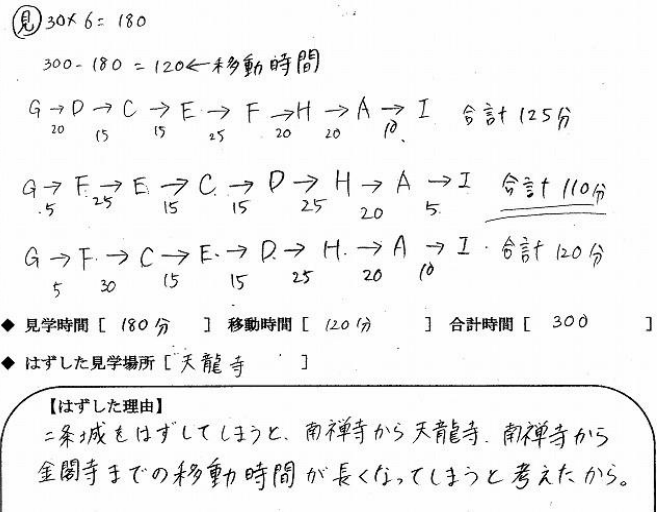 見 30×6=180
300-180=120←移動時間
G→D→C→E→F→H→A→I 合計125分
20 15 15 25 20 20 10
G→F→E→C→D→H→A→I 合計110分
5 25 15 15 25 20 5
G→F→C→E→D→H→A→I 合計120分
5 30 15 15 25 20 10
◆ 見学時間 [ 180分 ] 移動時間 [ 120分 ] 合計時間 [ 300 ]
◆ はずした見学場所 [ 天龍寺 ]
【はずした理由】
二条城をはずしてしまうと、南禅寺から天龍寺、南禅寺から
金閣寺までの移動時間が長くなってしまうと考えたから。